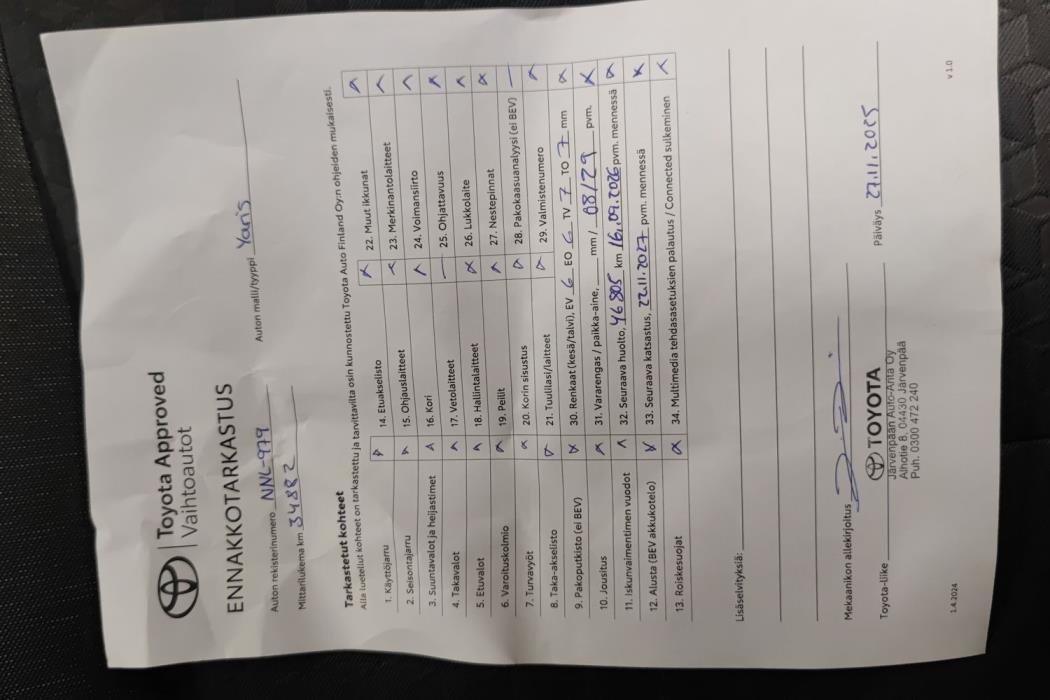 Toyota Approved
Vaihtoautot
ENNAKKOTARKASTUS
Auton rekisterinumero NNL-979 Auton malli/tyyppi Yaris
Mittarilukema km 34882
Tarkastetut kohteet
Alla luetellut kohteet on tarkastettu ja tarvittavilta osin kunnostettu Toyota Auto Finland Oy:n ohjeiden mukaisesti.
1. Käyttöjarru
2. Seisontajarru
3. Suuntavalot ja heijastimet
4. Takavalot
5. Etuvalot
6. Varoituskolmio
7. Turvavyöt
8. Taka-akselisto
9. Pakoputkisto (ei BEV)
10. Jousitus
11. Iskunvaimentimen vuodot
12. Alusta (BEV akkukotelo)
13. Roiskesuojat
14. Etuakselisto
15. Ohjauslaitteet
16. Kori
17. Vetolaitteet
18. Hallintalaitteet
19. Peilit
20. Korin sisustus
21. Tuulilasi/laitteet
22. Muut ikkunat
23. Merkinantolaitteet
24. Voimansiirto
25. Ohjattavuus
26. Lukkolaite
27. Nestepinnat
28. Pakokaasuanalyysi (ei BEV)
29. Valmistenumero
30. Renkaat (kesä/talvi), EV 6 EO 6 TV 7 TO 7 mm
31. Vararengas / paikka-aine, ____ mm / 08/29 pvm.
32. Seuraava huolto, 46805 km 16.09.2026 pvm. mennessä
33. Seuraava katsastus, 22.11.2027 pvm. mennessä
34. Multimedia tehdasasetuksien palautus / Connected sulkeminen
Lisäselvityksiä:
Mekaanikon allekirjoitus
Toyota-liike TOYOTA Päiväys 27.11.2025
Järvenpään Auto-Arita Oy
Alhotie 8, 04430 Järvenpää
Puh. 0300 472 240
1.4.2024 v 1.0